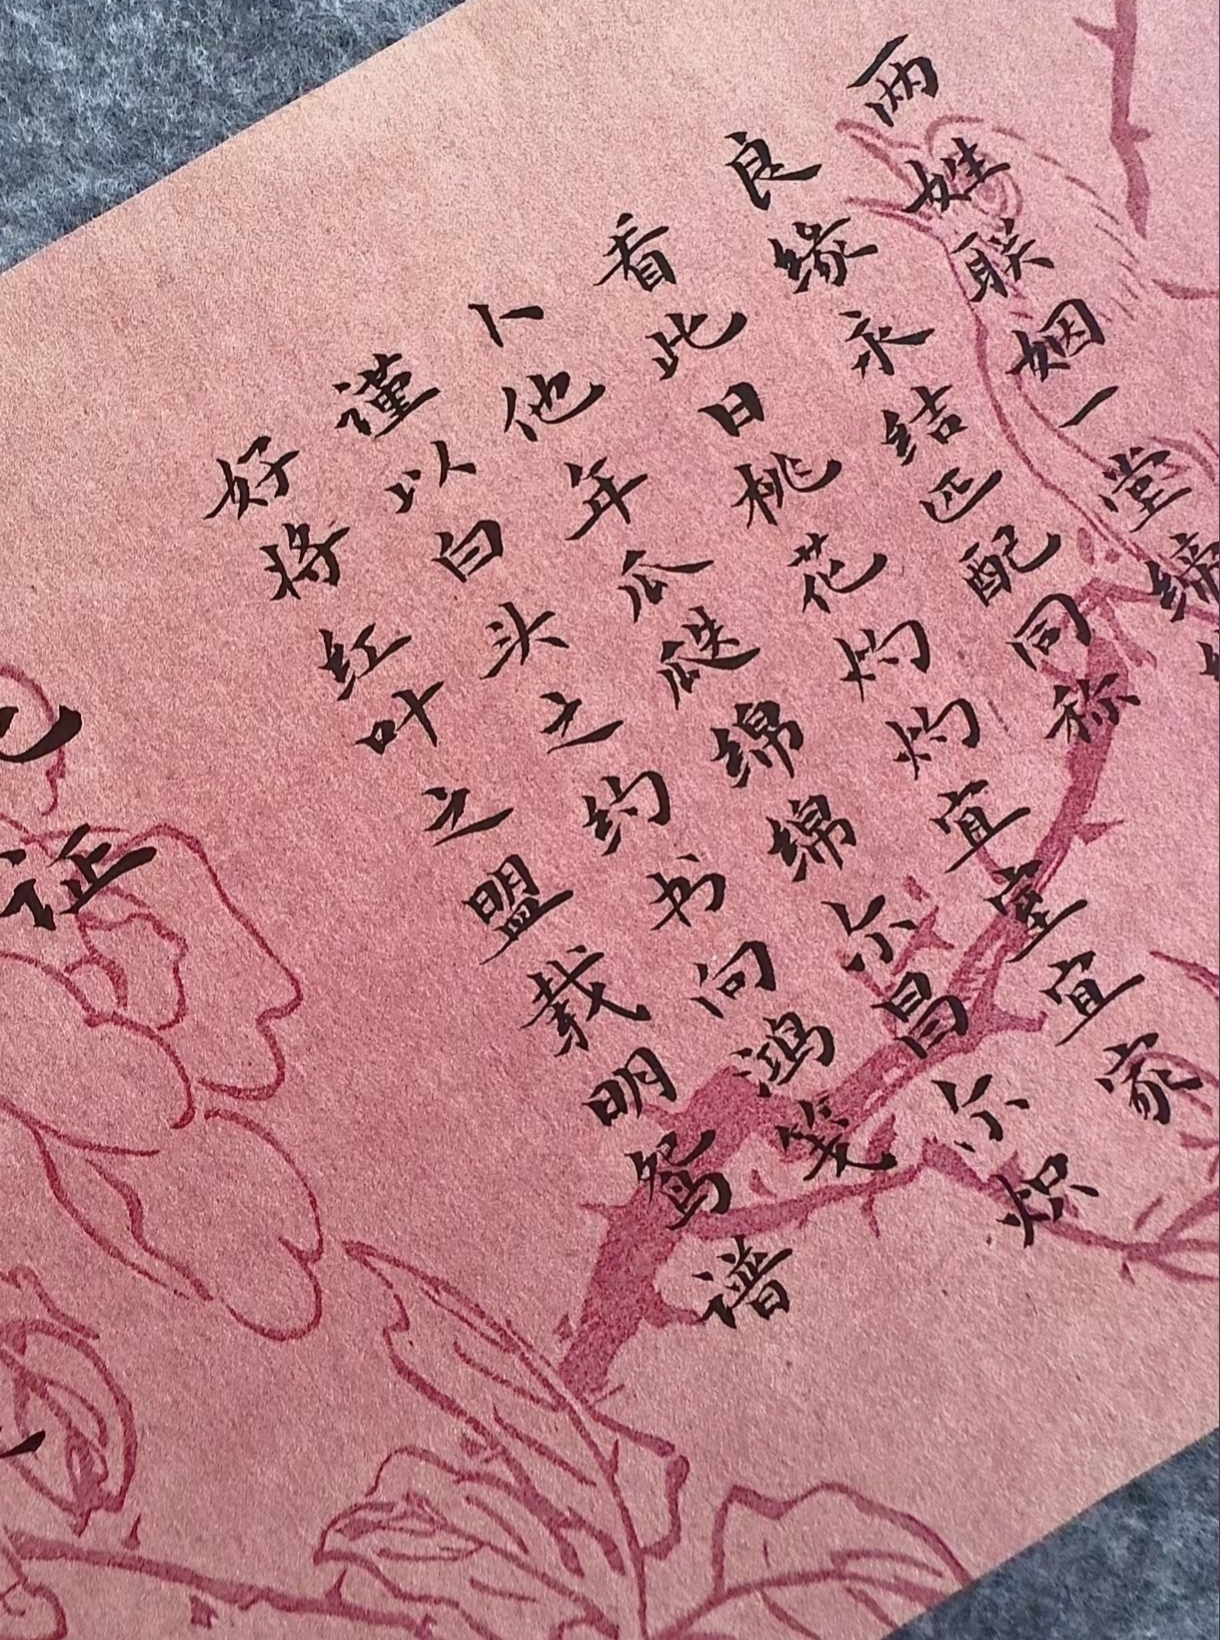 两姓联姻一堂缔
良缘永结匹配同称
看此日桃花灼灼宜室宜家
卜他年瓜瓞绵绵尔昌尔炽
谨以白头之约书向鸿笺
好将红叶之盟载明鸳谱
证